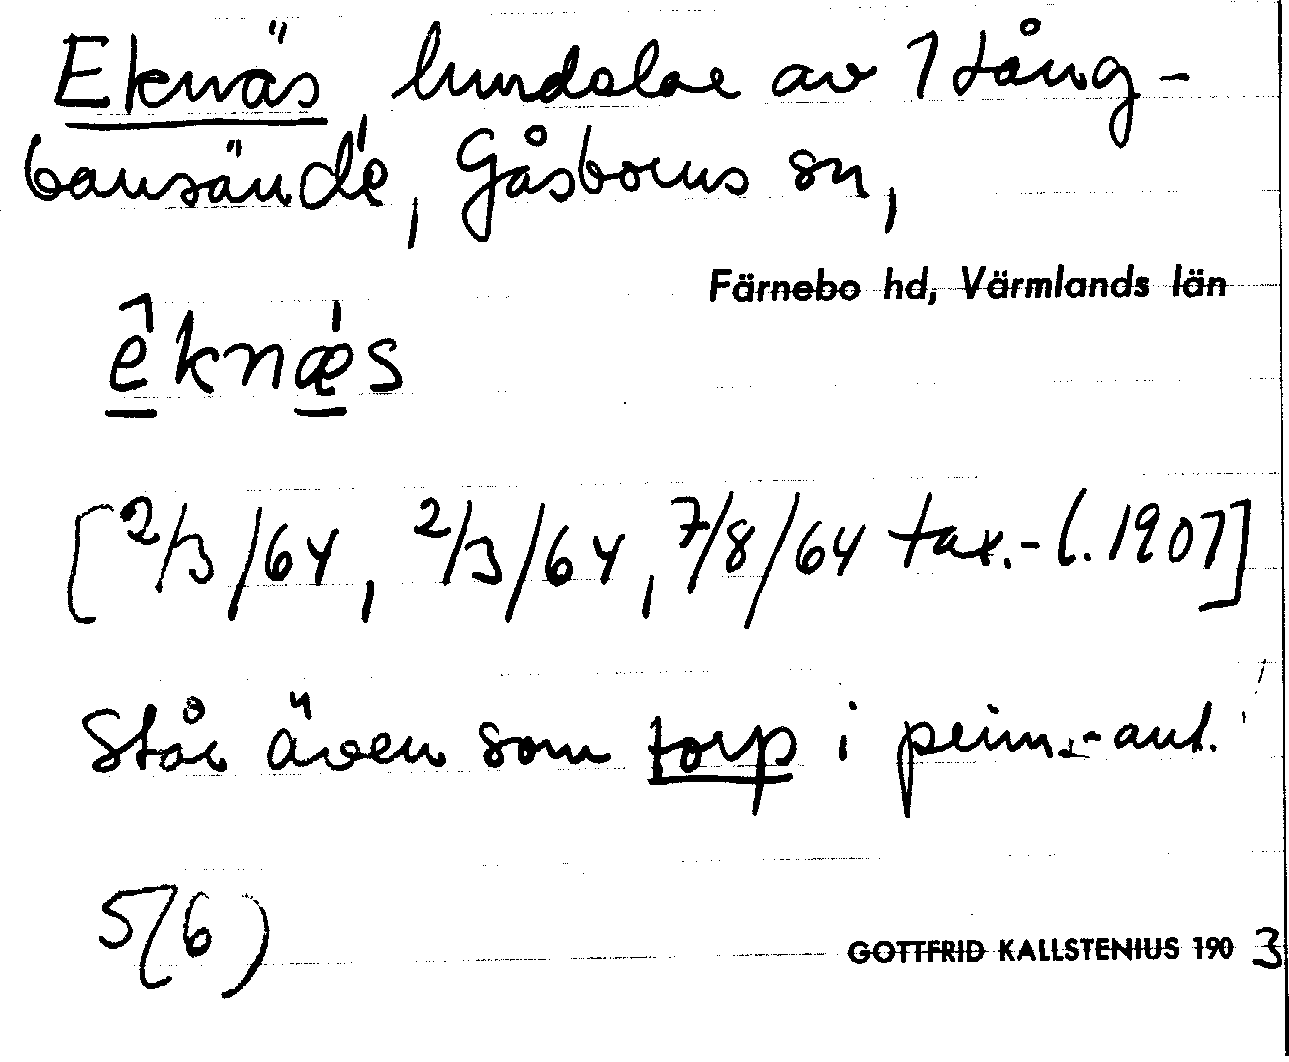 Eknäs lundelar av 1 Lång-
bansände, Gåsborns sn,
Färnebo hd, Värmlands län
êknǽs
[2/3/64, 2/3/64, 7/8/64 tax.-l. 1907]
Står även som torp i prim.-ant.
5(6)
GOTTFRID KALLSTENIUS 1903